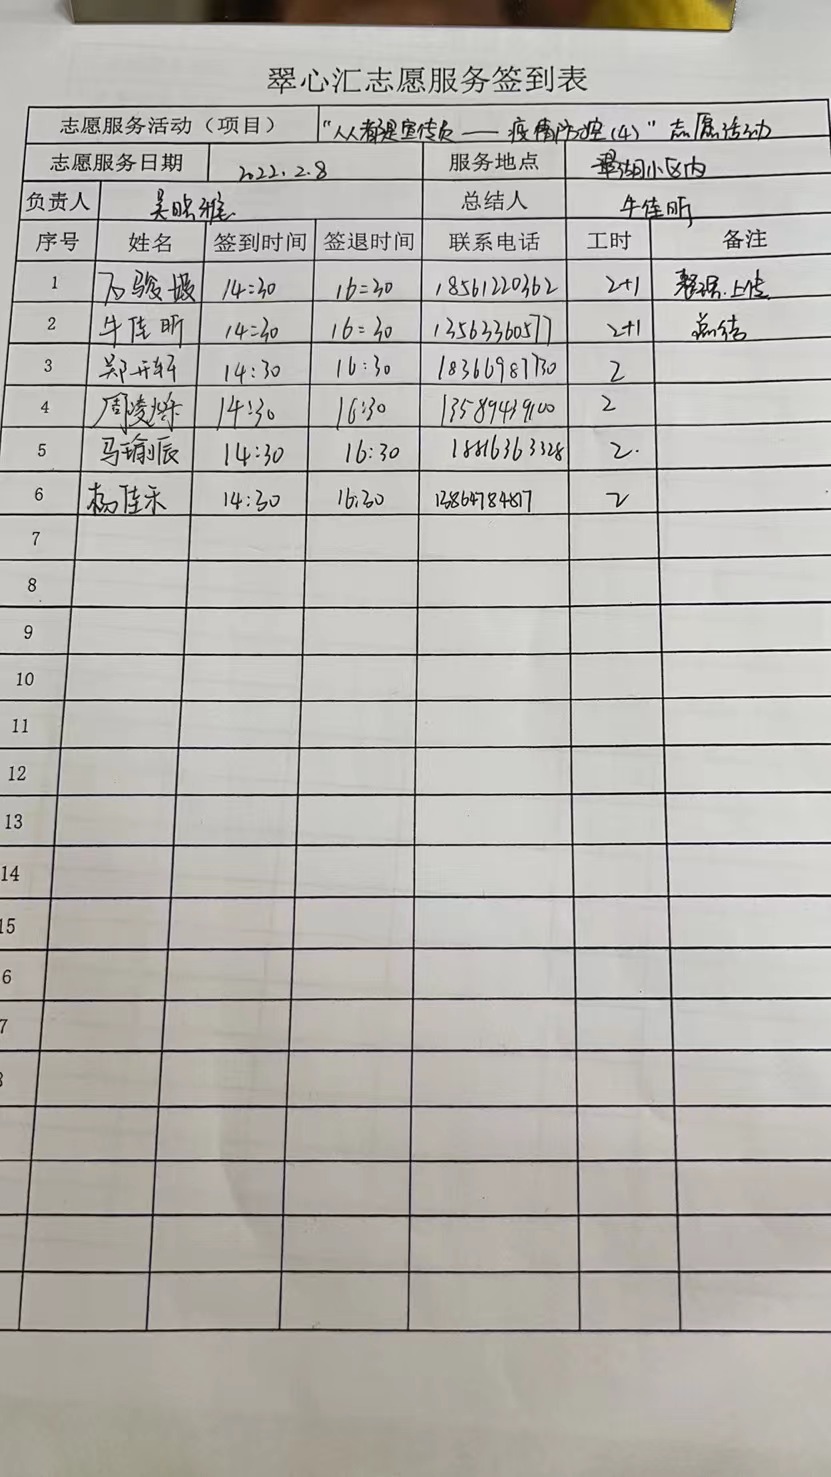 翠心汇志愿服务签到表
志愿服务活动（项目） "人人都是宣传员——疫情防控(4)"志愿活动
志愿服务日期 2022.2.8 服务地点 翠湖小区内
负责人 吴 雅 总结人 牛佳昕
序号 姓名 签到时间 签退时间 联系电话 工时 备注
1 石骏 14:30 16:30 18561220362 2+1 整理.上传
2 牛佳昕 14:30 16:30 13563360577 2+1 总结
3 郑开轩 14:30 16:30 2
4 周凌烁 14:30 16:30 13589439100 2
5 马瑜辰 14:30 16:30 18816363328 2.
6 杨佳禾 14:30 16:30 13864784817 2
7
8
9
10
11
12
13
14
15
6
7